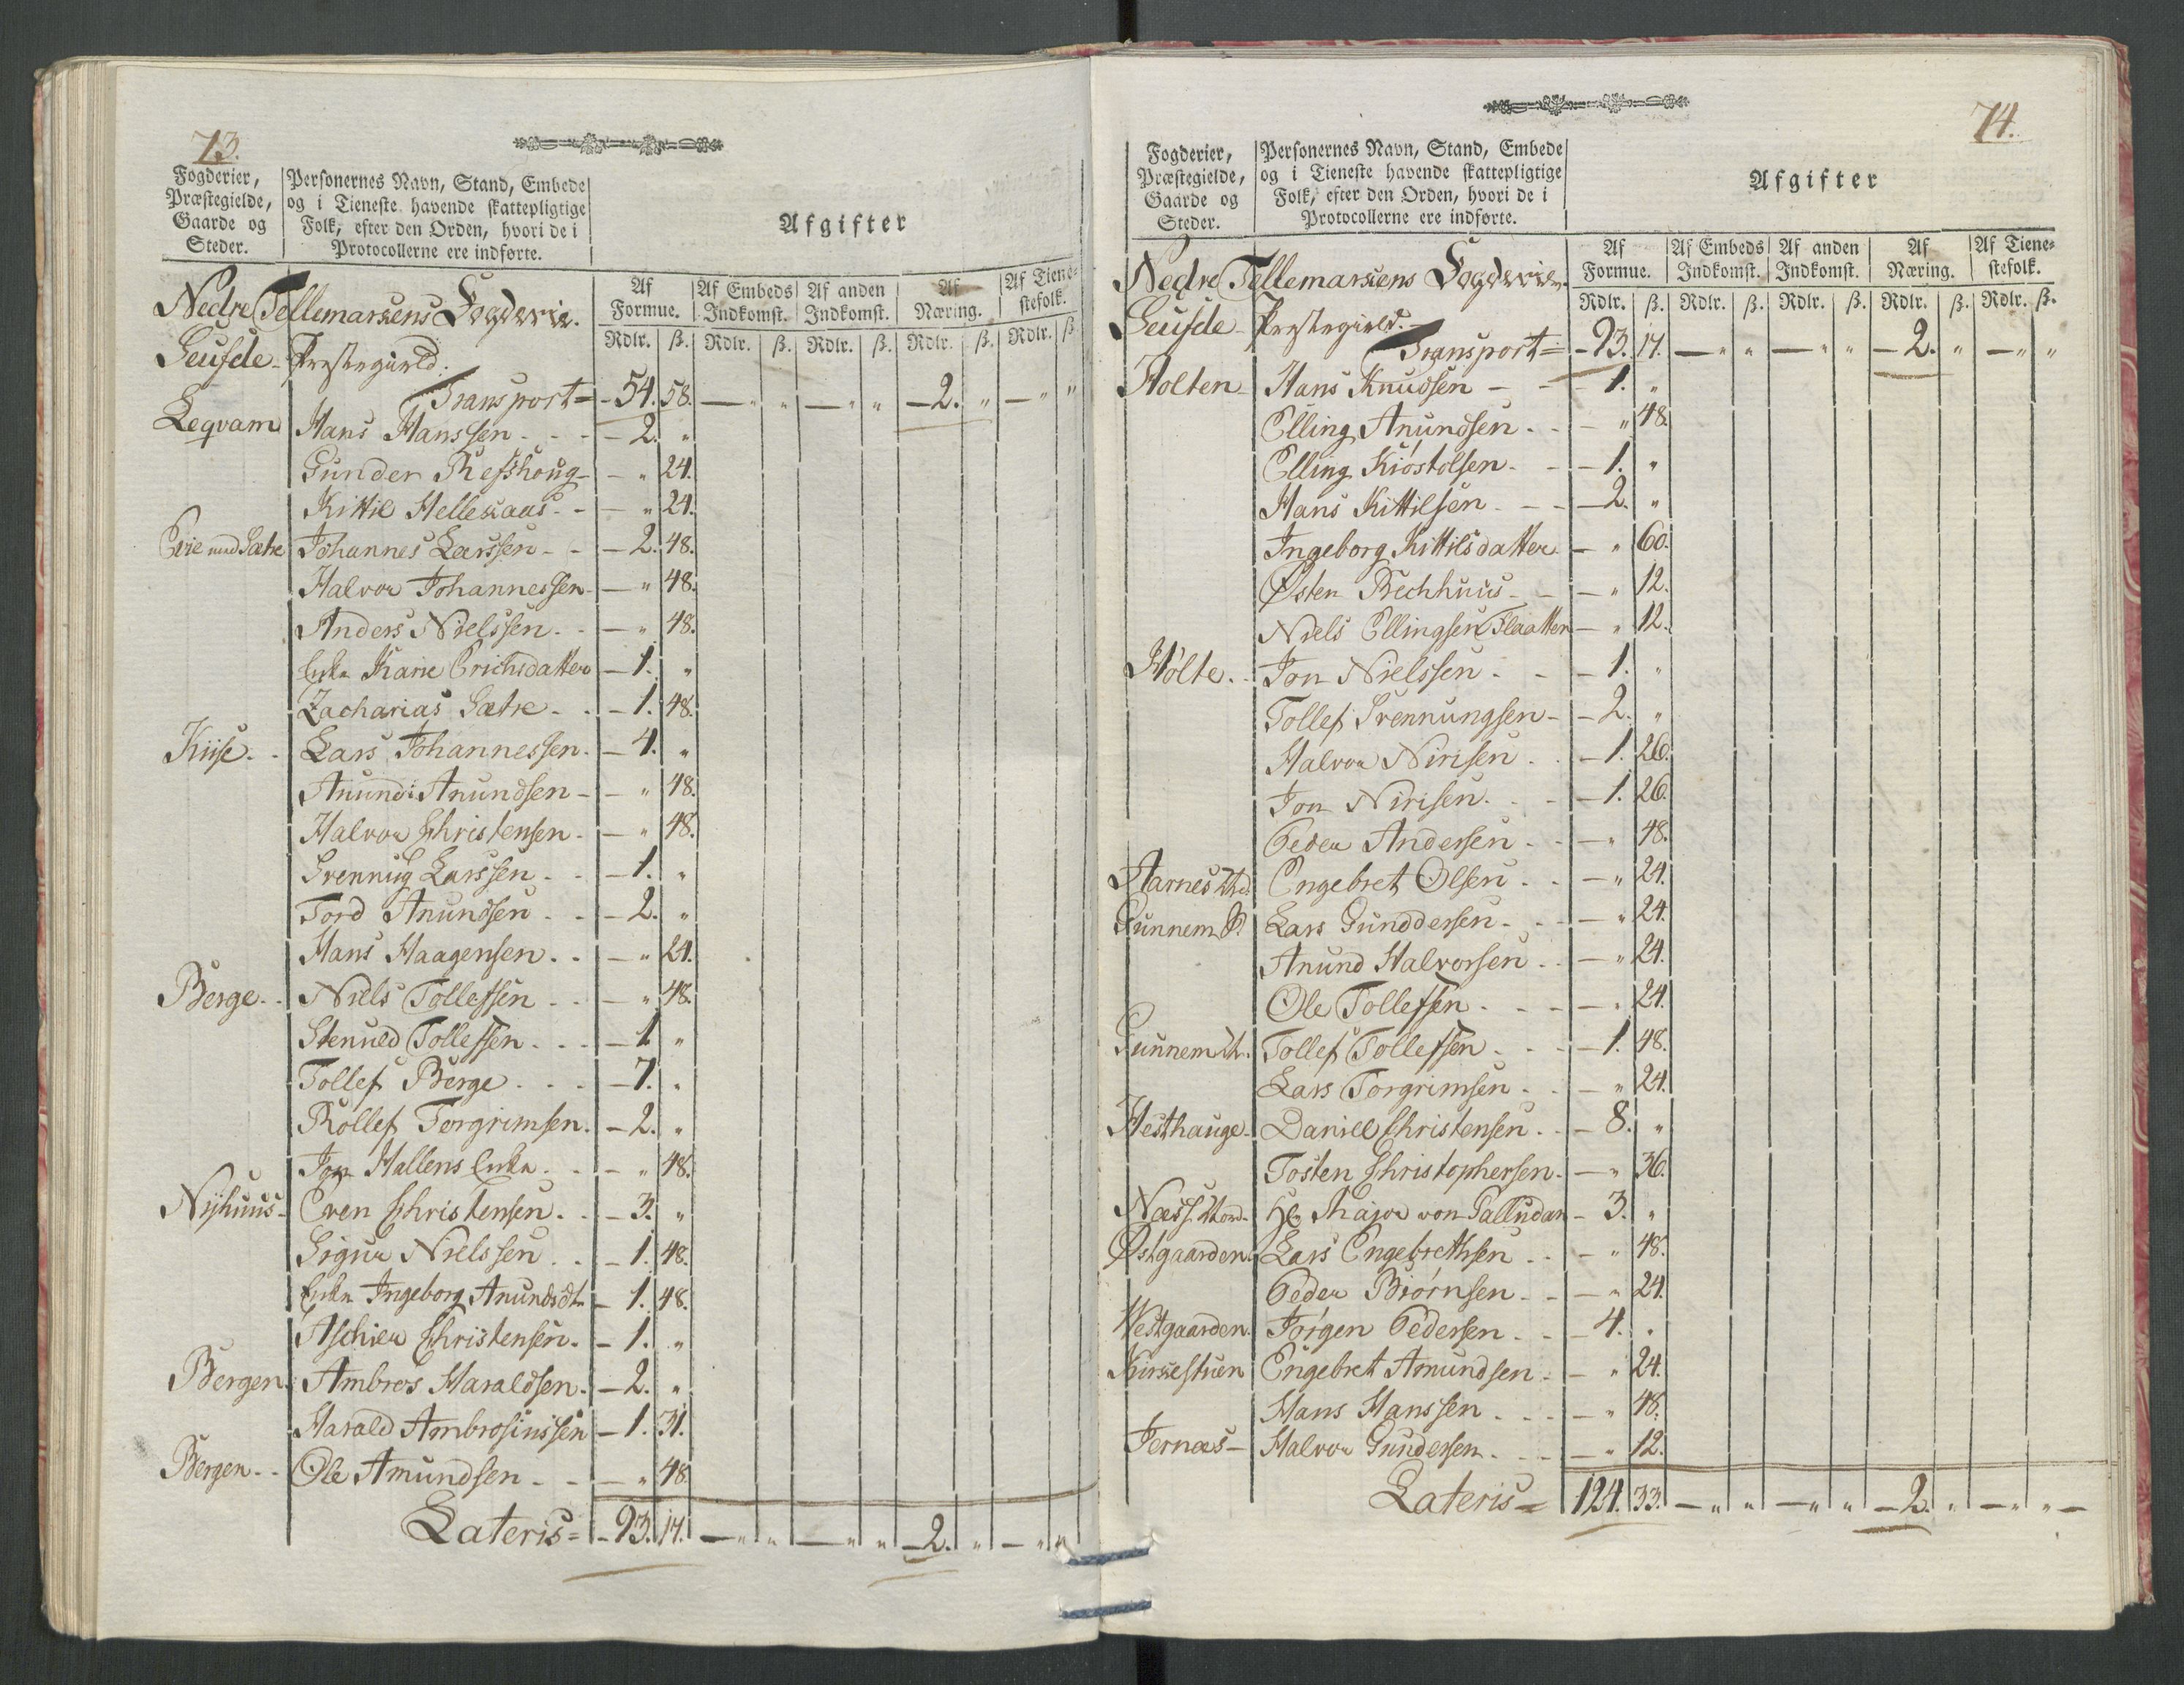 73.
Fogderier, Præstegielde, Gaarde og Steder.
Personernes Navn, Stand, Embede og i Tieneste havende skattepligtige Folk, efter den Orden, hvori de i Protocollerne ere indførte.
Afgifter
Af Formue. Af Embeds Indkomst. Af anden Indkomst. Af Næring. Af Tienestefolk.
Rdlr. ß. Rdlr. ß. Rdlr. ß. Rdlr. ß. Rdlr. ß.
Nedre Tellemarkens Fogderie.
Geusde Præstegield.
Transport = - 54. 58. — " " — " " — 2. " — " "
Leqvam Hans Hanssen - - - 2. "
Gunder Refshoug - — " 24.
Kittil Hellekaas - - — " 24.
Evie med Sætre Johannes Larssen - - — 2. 48.
Halvor Johannessen - — " 48.
Anders Nielssen - - — " 48.
Enke Karie Erichsdatter — 1. "
Zacharias Sætre - - — 1. 48.
Kiise - - Lars Johannessen - — 4. "
Anund Anundsen - — " 48.
Halvor Christensen - — " 48.
Svennug Larssen - - — 1. "
Tord Anundsen - - — 2. "
Hans Haagensen - - — " 24.
Berge - - Niels Tollefsen - - — " 48.
Stenuld Tollefsen - - - — 1. "
Tollef Berge - - - — 7. "
Rollef Torgrimsen. — 2. "
Jon Hallens Enke - - — " 48.
Nyhuus - Even Christensen - - — 3. "
Sigur Nielssen - - — 1. 48.
Enke Ingeborg Anundsdtr — 1. 48.
Aschier Christensen - — 1. "
Bergen Ambros Haraldsen - — 2. "
Harald Ambrosiussen — 1. 31.
Bergen - - Ole Amundsen - - — " 48.
Lateris = - 93. 17. — " " — " " — 2. " — " "
74.
Fogderier, Præstegielde, Gaarde og Steder.
Personernes Navn, Stand, Embede og i Tieneste havende skattepligtige Folk, efter den Orden, hvori de i Protocollerne ere indførte.
Afgifter
Af Formue. Af Embeds Indkomst. Af anden Indkomst. Af Næring. Af Tienestefolk.
Rdlr. ß. Rdlr. ß. Rdlr. ß. Rdlr. ß. Rdlr. ß.
Nedre Tellemarkens Fogderie.
Geusde - Præstegield. -
Transport = - 93. 17. — " " — " " — 2. " — " "
Holten - Hans Knudsen - - — 1. "
Elling Anundsen - - — " 48.
Elling Kiøstolsen - - — 1. "
Hans Kittilsen - - - — 2. "
Ingeborg Kittilsdatter — " 60.
Østen Bechhuus - - — " 12.
Niels Ellingsen Flaatten — " 12.
Holte - - Jon Nielssen - - — 1. "
Tollef Svennungsen - — 2. "
Halvor Nirisen - - — 1. 26.
Jon Nirisen - - — 1. 26.
Peder Andersen - - — " 48.
Aarnes Engebret Olsen - - — " 24.
Gunnem Lars Gunddersen - - — " 24.
Anund Halvorsen - - — " 24.
Ole Tollefsen - - - — " 24.
Gunnem Tollef Tollefsen - - — 1. 48.
Lars Torgrimsen - - — " 24.
Hesthauge - Daniel Christensen - - — 8. "
Tosten Christophersen - — " 36.
Næss Hr Major von Palludan - 3. "
Østgaarden Lars Engebrethsen - - — " 48.
Peder Biørnsen - - — " 24.
Westgaarden Jørgen Pedersen - - — 4. "
Kirkestuen Engebret Amundsen - — " 24.
Hans Hanssen - - - — " 48.
Jernæs - Halvor Gundersen - - — " 12.
Lateris = 124. 33. — " " — " " — 2. " — " " —